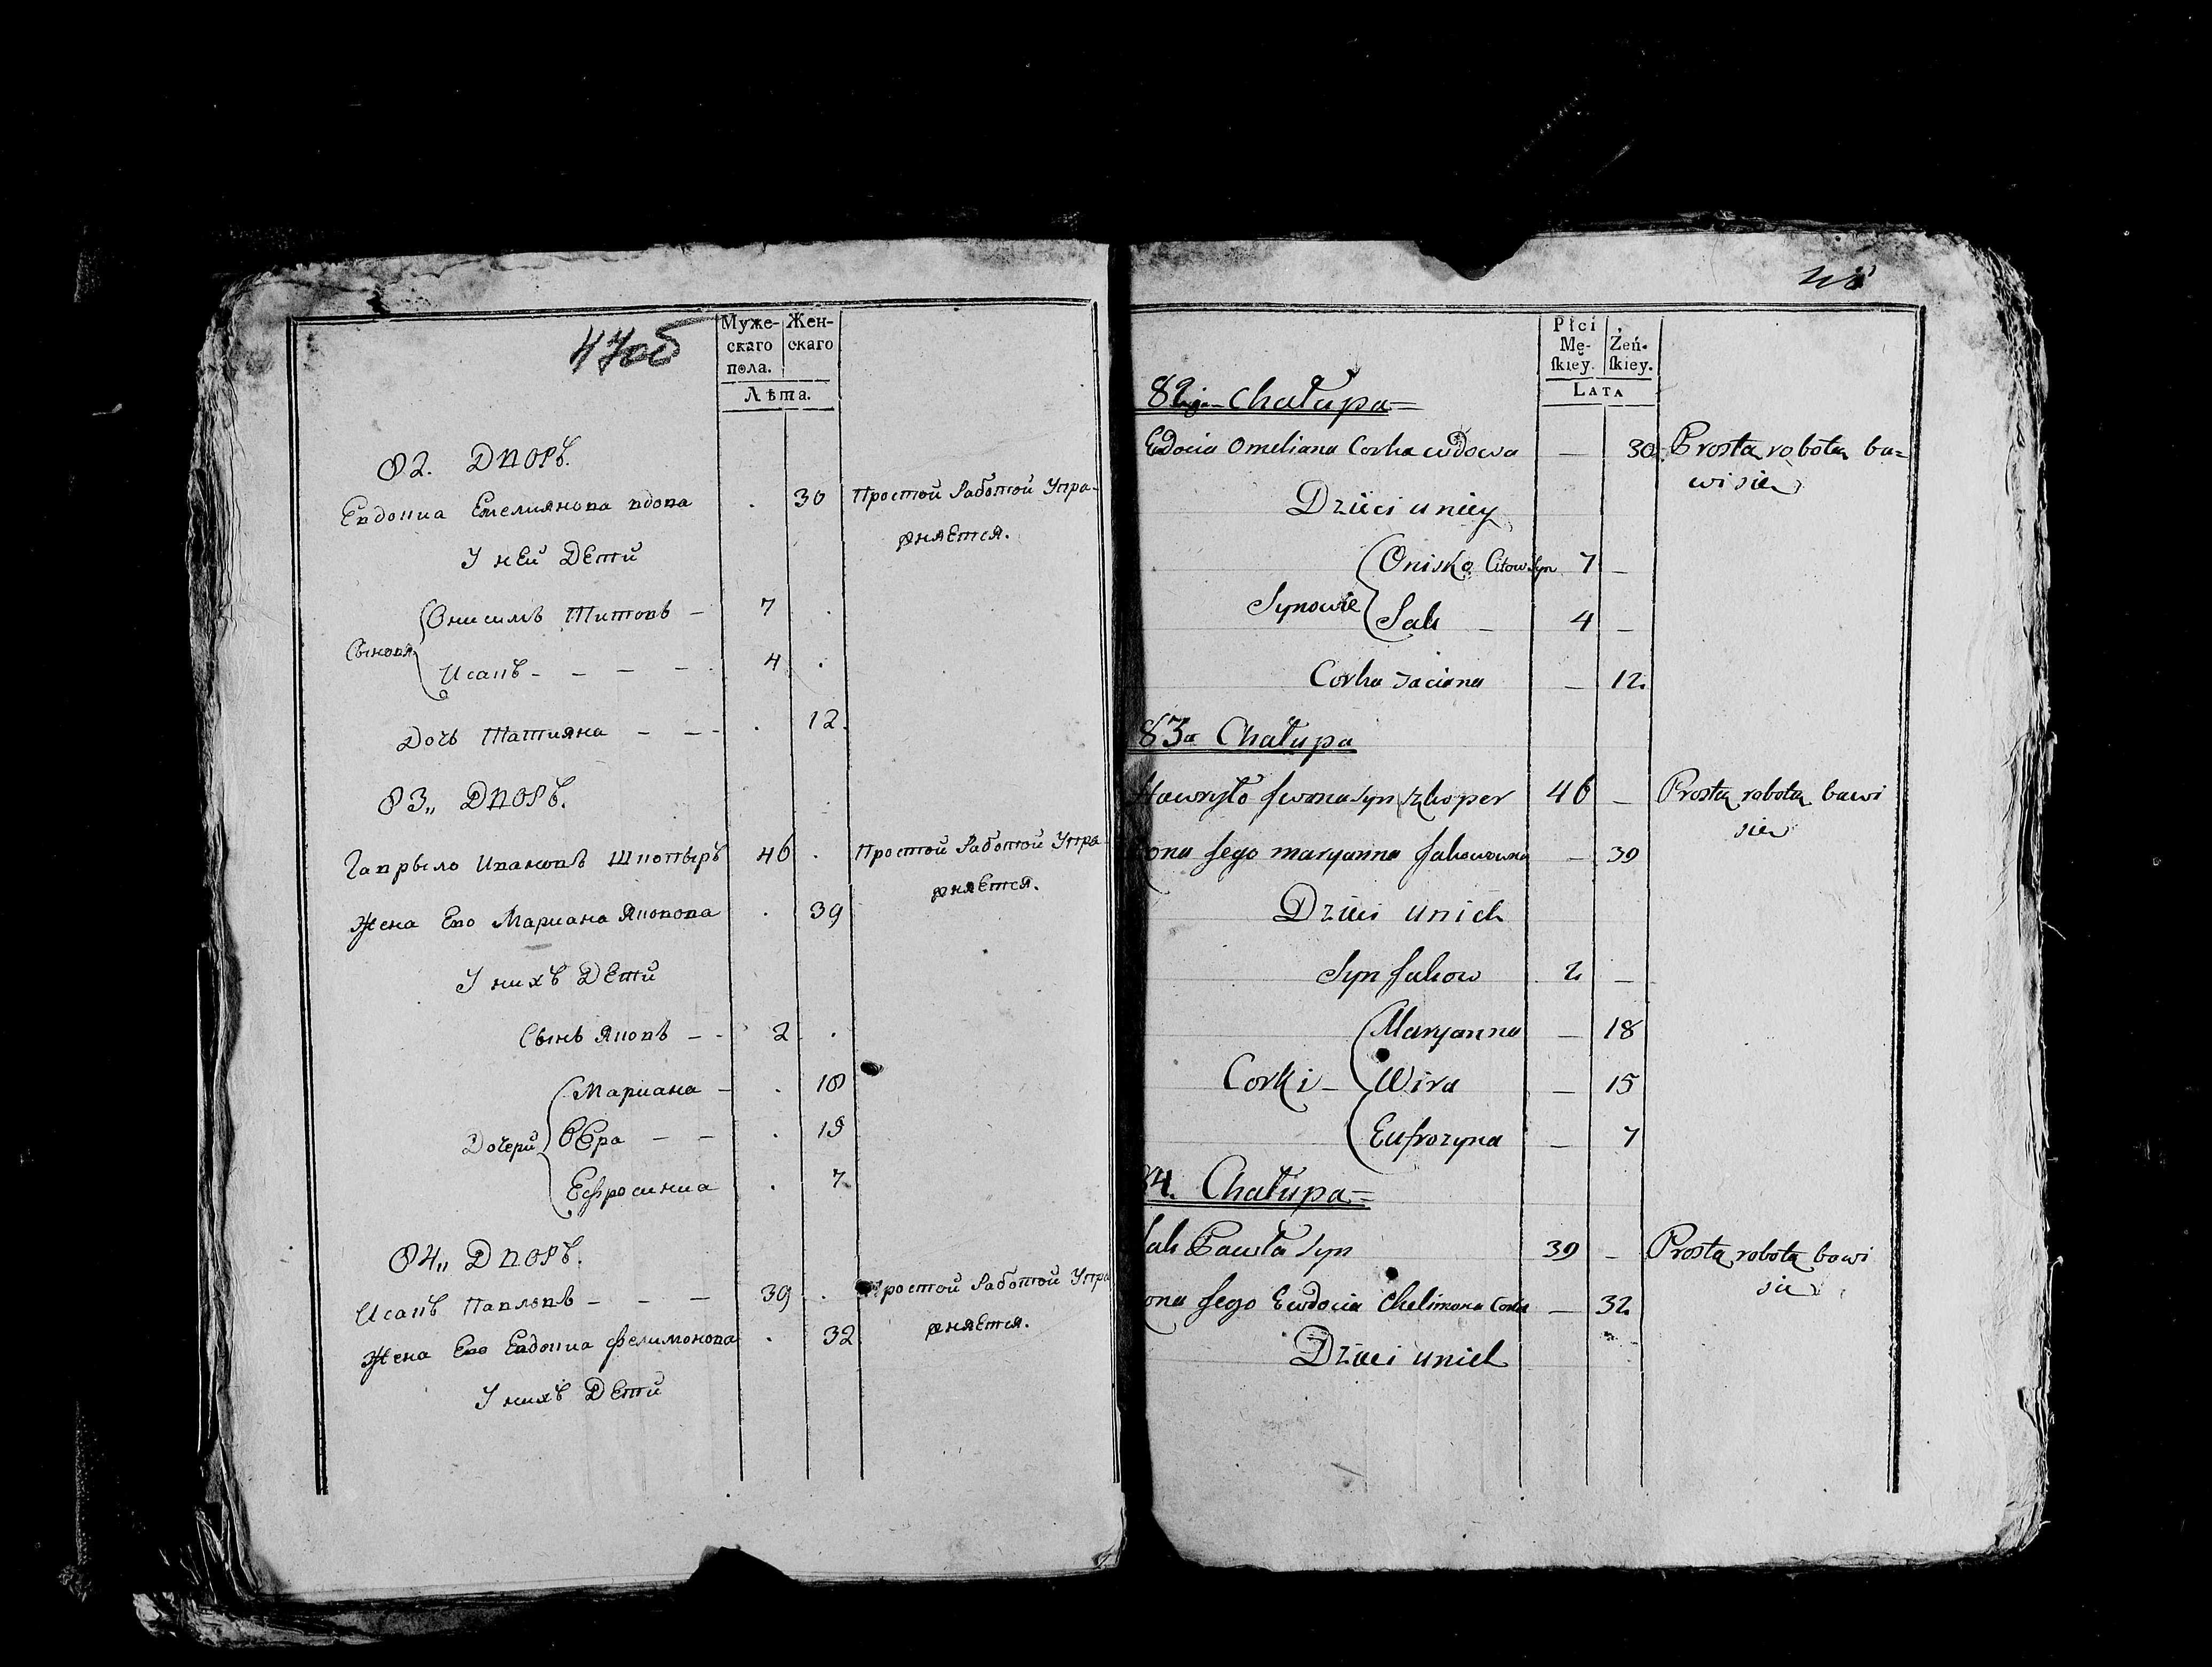 47об
Муже- Жен-
скаго скаго
пола.
Лѣта.
82. Дворъ.
Евдокиа Емелиянова вдова . 30 Простой Работой Упра-
вняется.
У ней Дети
Онисимъ Титовъ - 7 .
Сыновя
Исакъ - - - - 4 .
Дочь Татияна - - - . 12.
83„ Дворъ.
Гаврыло Ивановъ Шкопыръ 46 . Простой Работой Упра-
вняется.
Жена Ево Мариана Яковова . 39
У нихъ Дети
Сынъ Яковъ - - 2 .
Мариана - . 18
Дочери Вера - - . 15
Ефросиниа . 7
84„ Дворъ.
Исакъ Павловъ - - - 39 . Простой Работой Упра
вняется.
Жена Ево Евдокиа Фелимонова . 32
У нихъ Дети
48
Płci
Mę- Żeń-
skiey. skiey.
LATA
82ga Chałupa
Eudocia Omeliana Corka wdowa — 30 Prostą robotą ba=
wi się
Dzieci uniey
Onisko Titow Syn 7 —
Synowie
Sak — 4 —
Corka Taciana — 12
83a Chałupa
Hawryło Iwana Syn Szkoper 46 — Prostą robotą bawi
się
Żona Jego Maryanna Jakowowna — 39
Dzieci unich
Syn Jakow 2 —
Maryanna — 18
Corki — Wira — 15
Eufrozyna — 7
84. Chałupa
Sak Pawła Syn 39 — Prostą robotą bawi
się
Żona Jego Ewdocia Chelimona Corka — 32
Dzieci unich